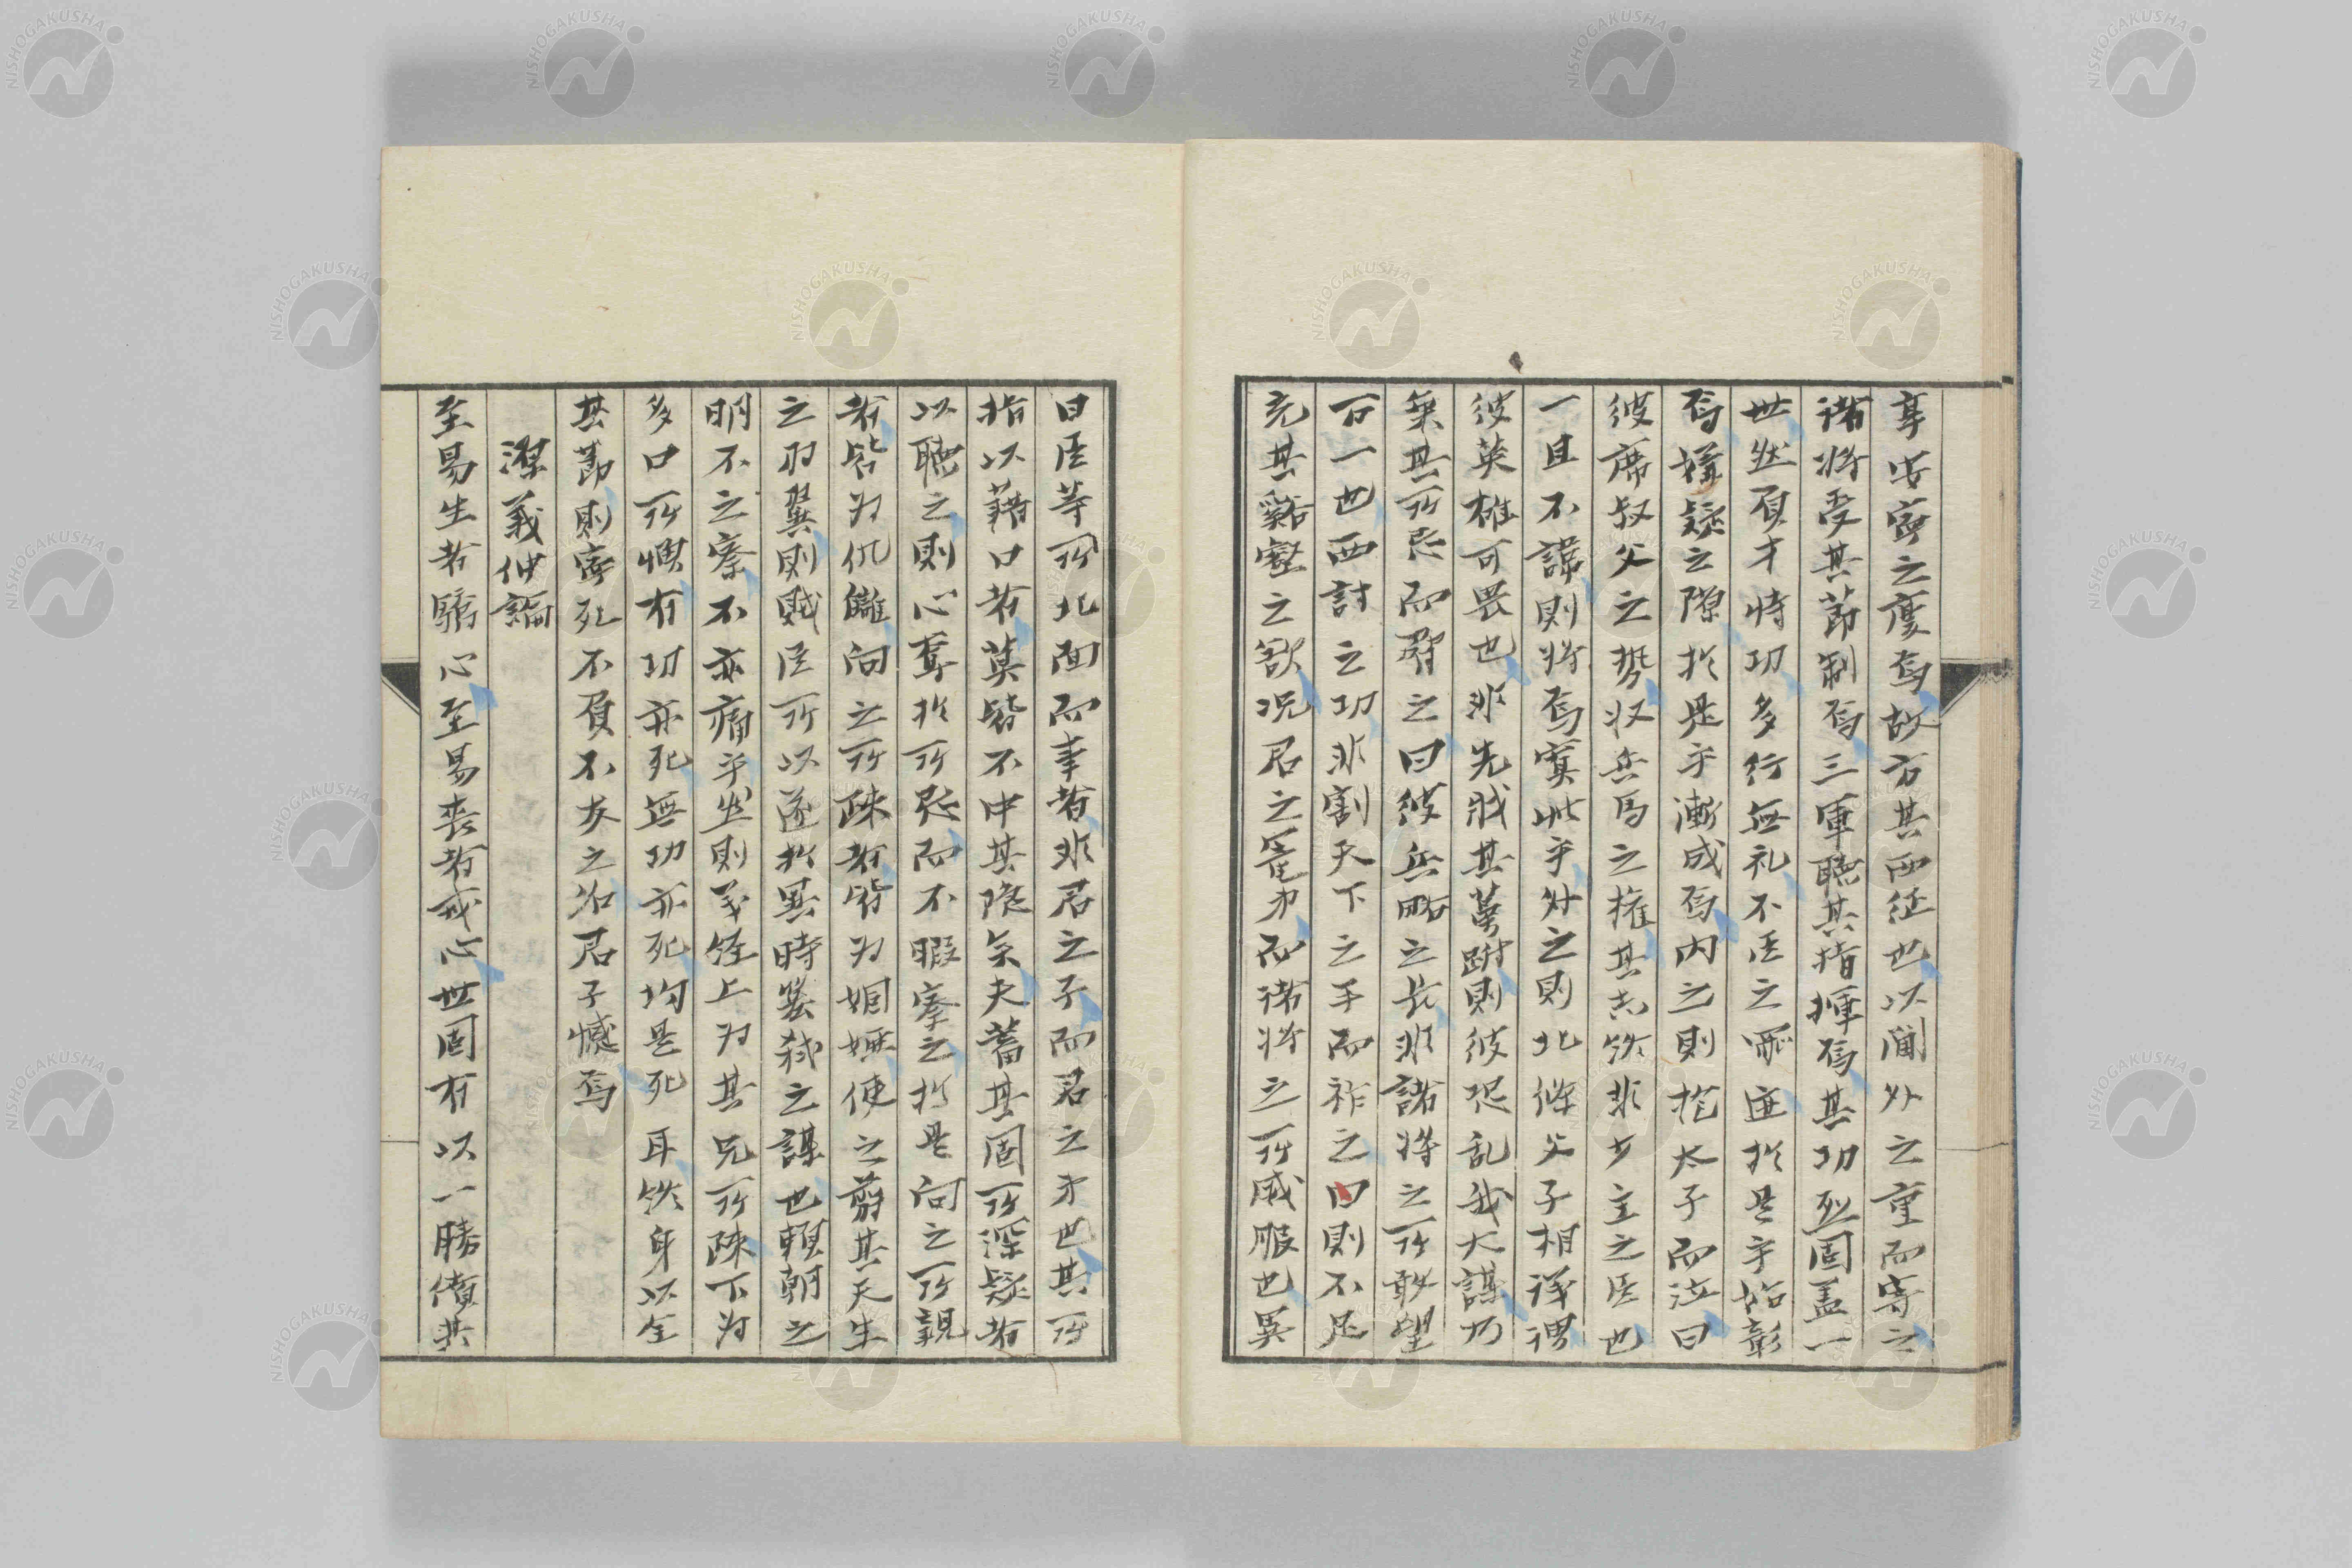 享安寧之慶焉故方其西征也以閫外之重而寄之
諸将受其節制焉三軍聴其指揮焉其功烈固盖一
世然負才恃功多行無礼不臣之 迹於是乎始彰
焉嫌疑之隙於是乎漸成焉内之則抱太子而泣曰
彼席叔父之勢収兵馬之権其志欲非少主之臣也
一旦不諱則将焉寘此乎外之則北条父子相謀謂
彼英雄可畏也非先戕其萼跗則彼恐乱我大謀乃
無其所忌而 之曰彼兵略之長非諸将之所敢望
而一也西討之功非割天下之半而祚之回則不足
充其谿壑之欲況君之寵弟而諸将之所威服也異
日臣等所北面而事者非君之子而君之才也其所
指以藉口者莫皆不中其隠矣夫蓄其固所深疑者
以聴之則心奪於所忌而不暇察之於是向之所親
者皆為仇讎向之所疎者皆為姻婭使之翦其天生
之羽翼則賊臣所以遂於異時簒弑之謀也頼朝之
明不之察不亦痛乎然則義経上為其兄所疎下為
多口所惧有功亦死無功亦死均是死耳欲身以全
其節則寧死不負不友之治君子憾焉
源義仲論
至易生者驕心至易喪者戒心世固有以一勝僨其
NISHOGAKUSHA